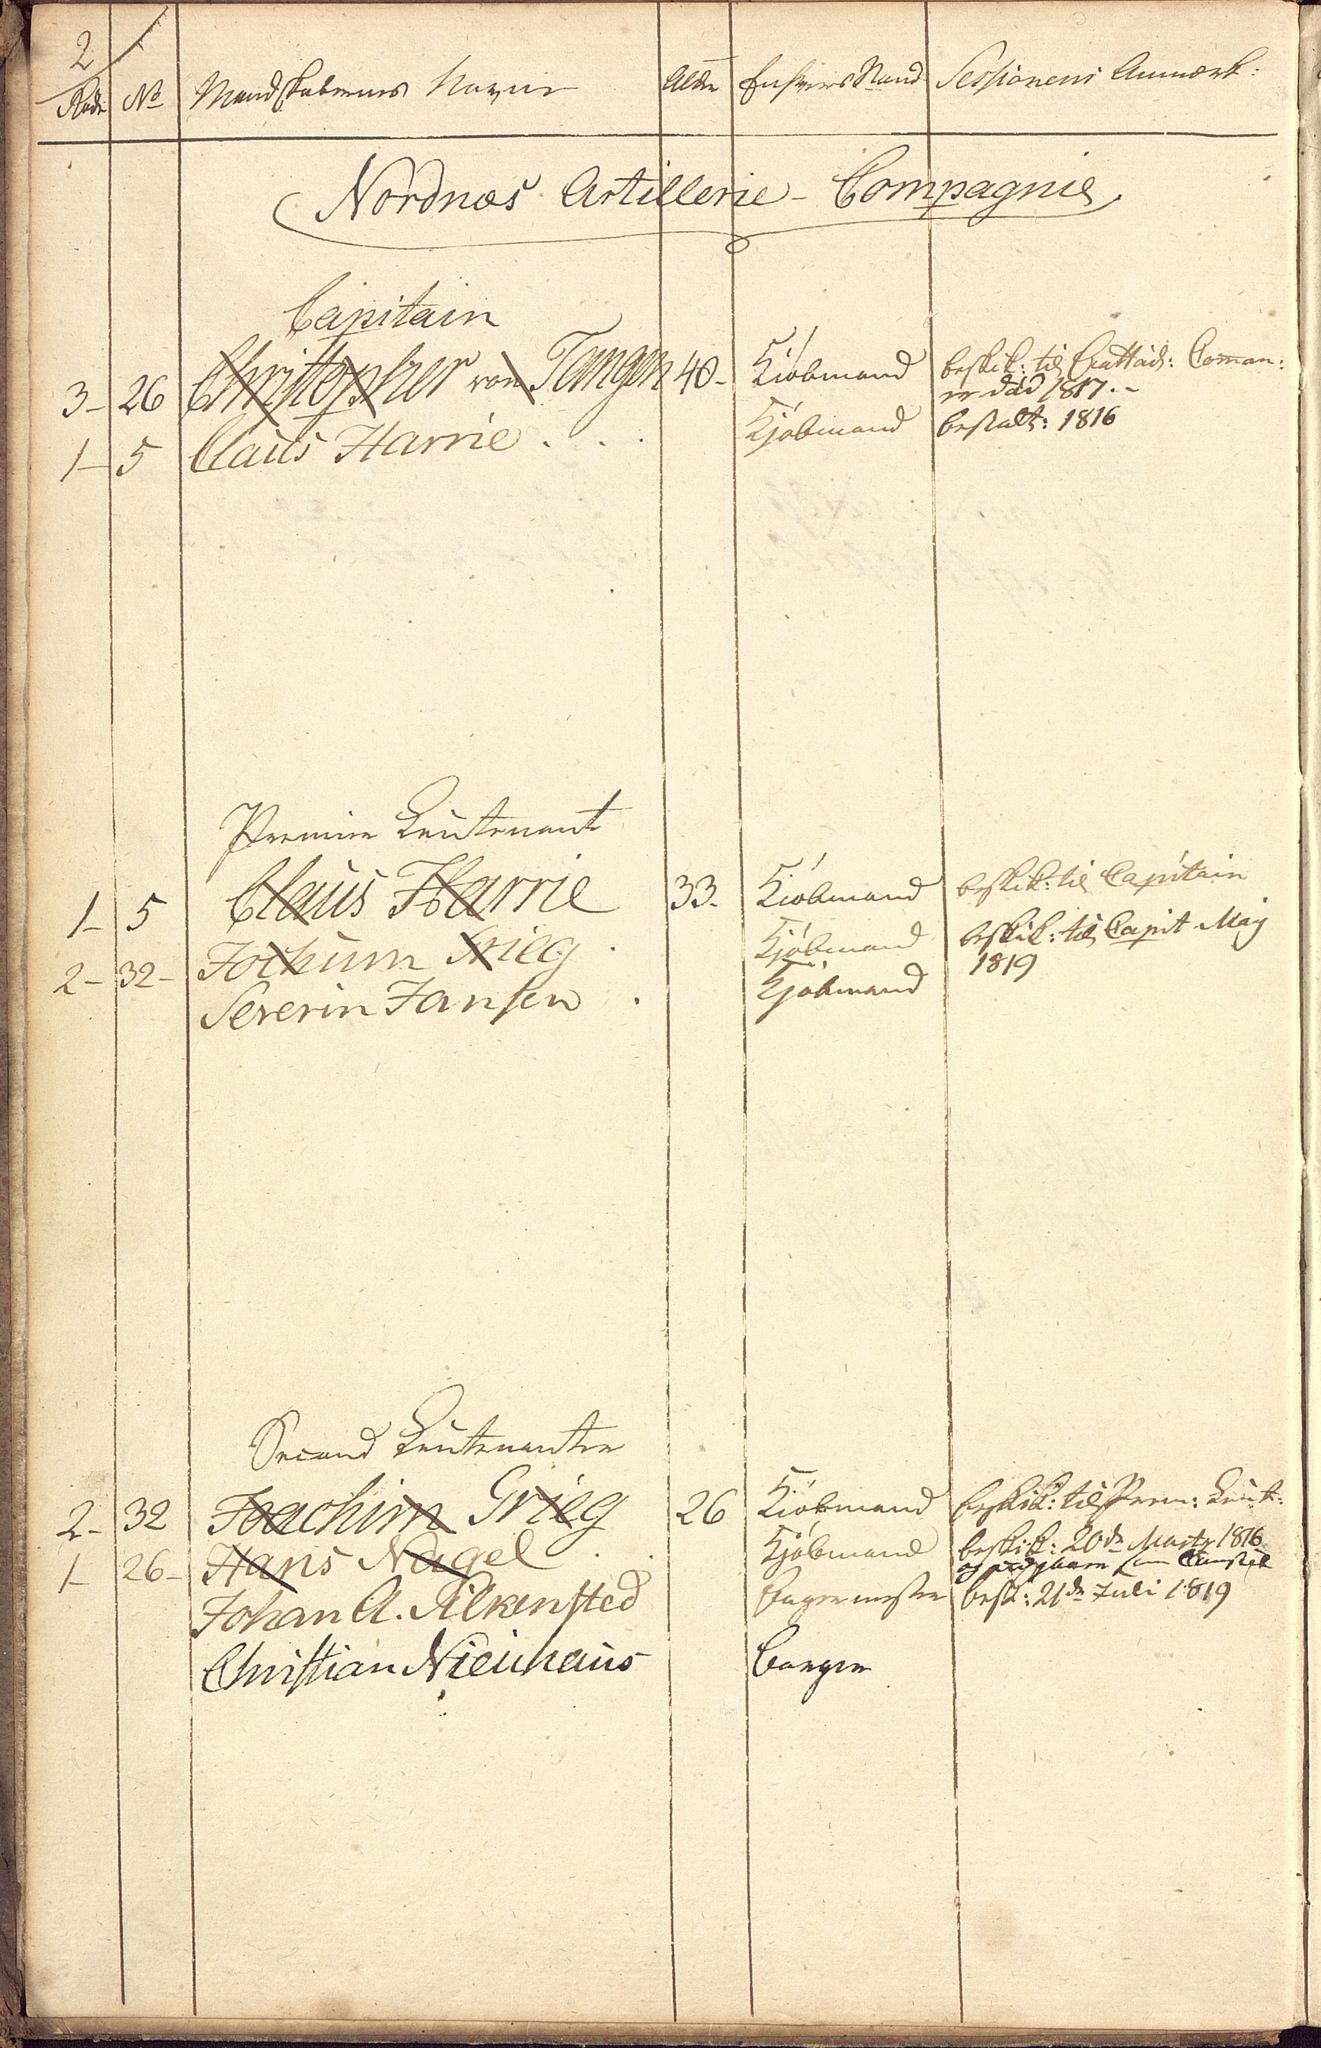 2
Rode No Mandskabernes Navne Alder Enhvers Stand Sessionens Anmærk:
Nordnæs Artillerie-Compagnie
Capitain
3- 26 Christopher von Tangen 40- Kiøbmand beskik: til Coman:
er død 1817.-
1- 5 Claus Harrie . . . Kjøbmand bestalt: 1816
Premier Leutenant
1- 5 Claus Harrie 33. Kiøbmand beskik: til Capitain
2- 32- Jochum Grieg . Kjøbmand beskik: til Capit Maj
1819
Severin Jansen . Kjøbmand
Second Leutenanter
2- 32 Joachim Grieg 26 Kiøbmand beskik: til Prem: Leut:
1- 26- Hans Nagel . . Kjøbmand beskik: 20de Marty 1816
Johan A. Silkensted besk: 21de Juli 1819
Christian Nieuhaus Borger